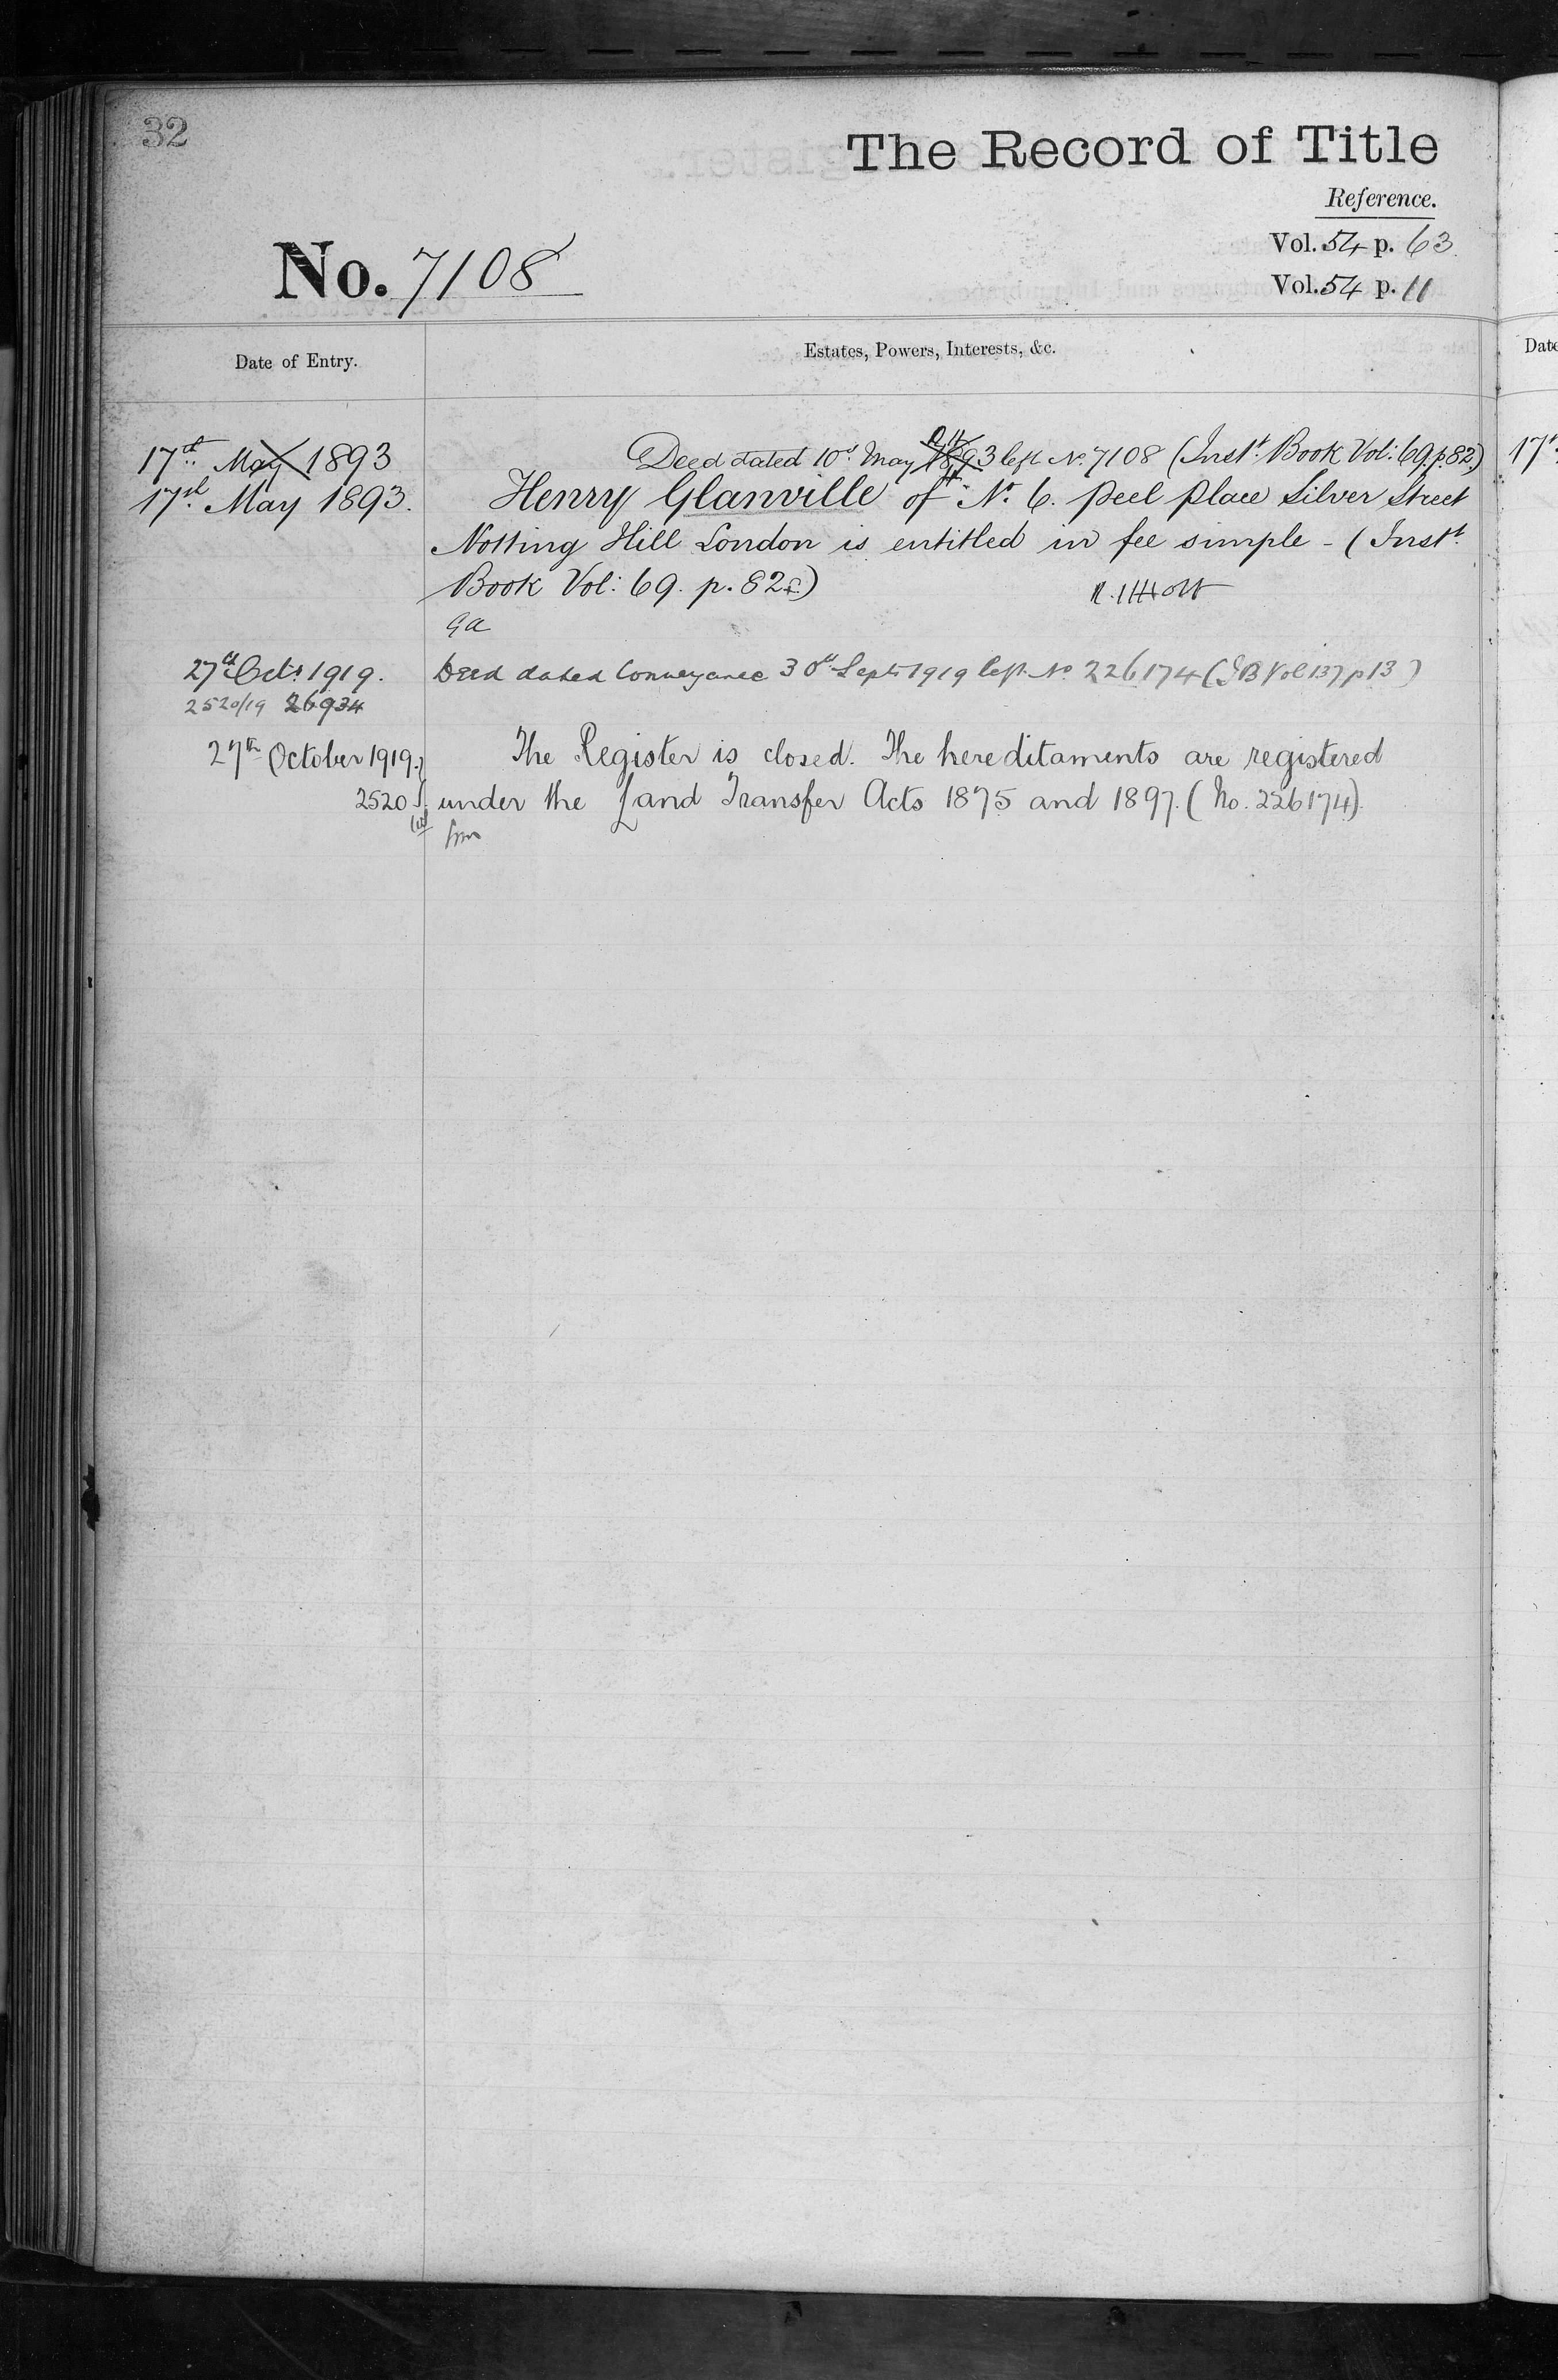 32
The Record of Title
Reference.
Vol. 54 p. 63
No. 7108
Vol. 54 p. 11
Date of Entry.
Estates, Powers, Interests, &c.
Date
17th May 1893
Deed dated 10th May 1893 left No. 7108 (Inst. Book Vol: 69. p. 82.)
17th
17th May 1893.
Henry Glanville of No. 6. Peel Place Silver Street
Notting Hill London is entitled in fee simple - (Inst.
Book Vol: 69. p. 82.)
GA
27th Octr. 1919.
Deed dated Conveyance 30th Sept. 1919 left No 226174 (IB Vol 137 p 13)
2520/19 26934
27th October 1919.
The Register is closed. The hereditaments are registered
2520
under the Land Transfer Acts 1875 and 1897. (No. 226174).